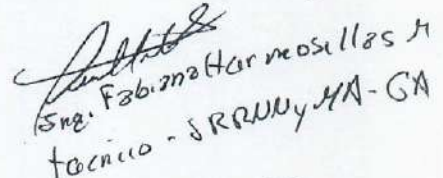 Ing. Fabiana Hermosillas M
tecnico - SRRNNyMA-GA